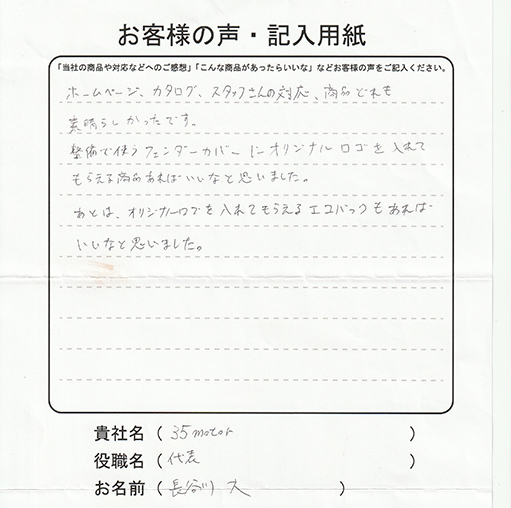 お客様の声・記入用紙
「当社の商品や対応などへのご感想」「こんな商品があったらいいな」などお客様の声をご記入ください。
ホームページ、カタログ、スタッフさんの対応、商品どれも
素晴らしかったです。
整備で使うフェンダーカバーにオリジナルロゴを入れて
もらえる商品あればいいなと思いました。
あとは、オリジナルロゴを入れてもらえるエコバックもあれば
いいなと思いました。
貴社名（35motor）
役職名（代表）
お名前（長谷川 大）